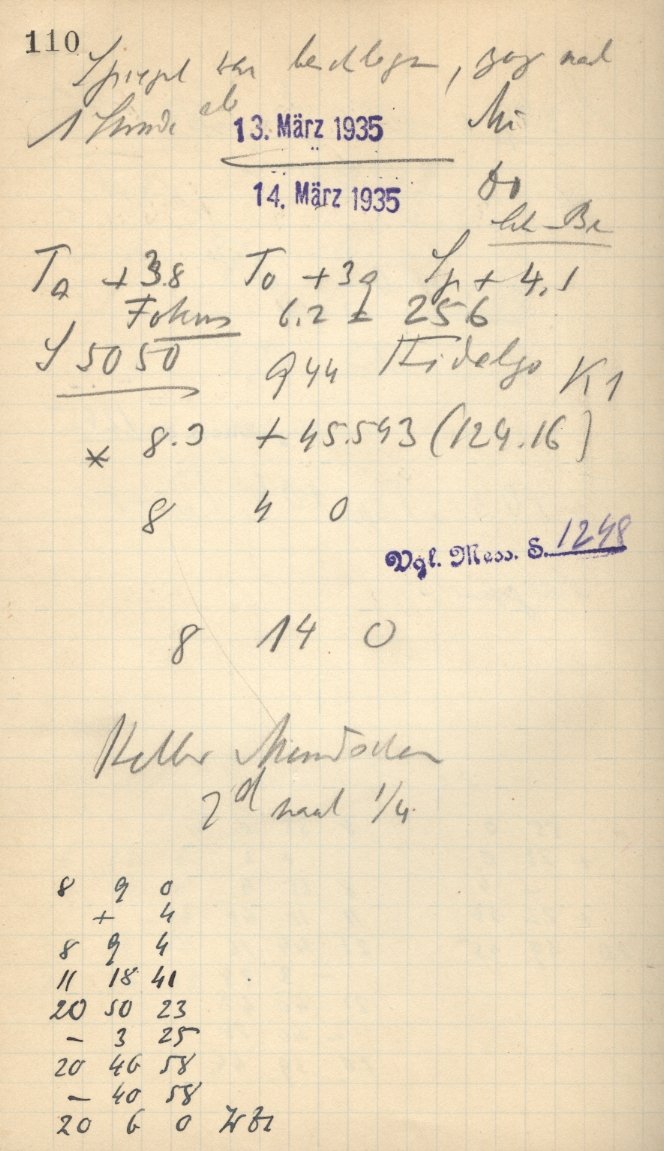 110
Spiegel war beschlagen, zog nach
1 Stunde ab
13. März 1935 Mi
14. März 1935 Do
Ta +3.8 To +3.9 Sp + 4.1
Fokus 6.2 = 256
S 5050 944 Hidalgo K1
* 8.3 + 45.543 (124.16)
8 4 0
Vgl. Mess. S. 1248
8 14 0
Heller Mondschein
2d nach 1/4
8 9 0
+ 4
8 9 4
11 18 41
20 50 23
- 3 25
20 46 58
- 40 58
20 6 0